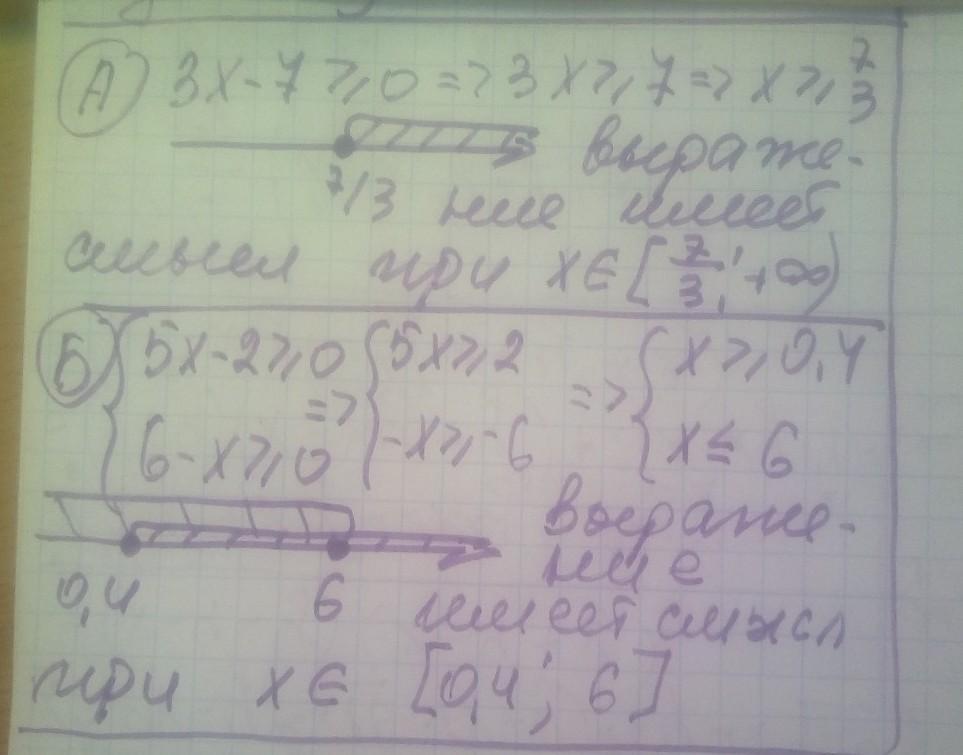 А) 3x-7⩾0 => 3x⩾7 => x⩾7/3
7/3
выраже-
ние имеет
смысл при x∈[7/3; +∞)
Б) {5x-2⩾0 {5x⩾2 {x⩾0,4
=> =>
6-x⩾0 -x⩾-6 x≤6
0,4 6
выраже-
ние
имеет смысл
при x∈ [0,4; 6]